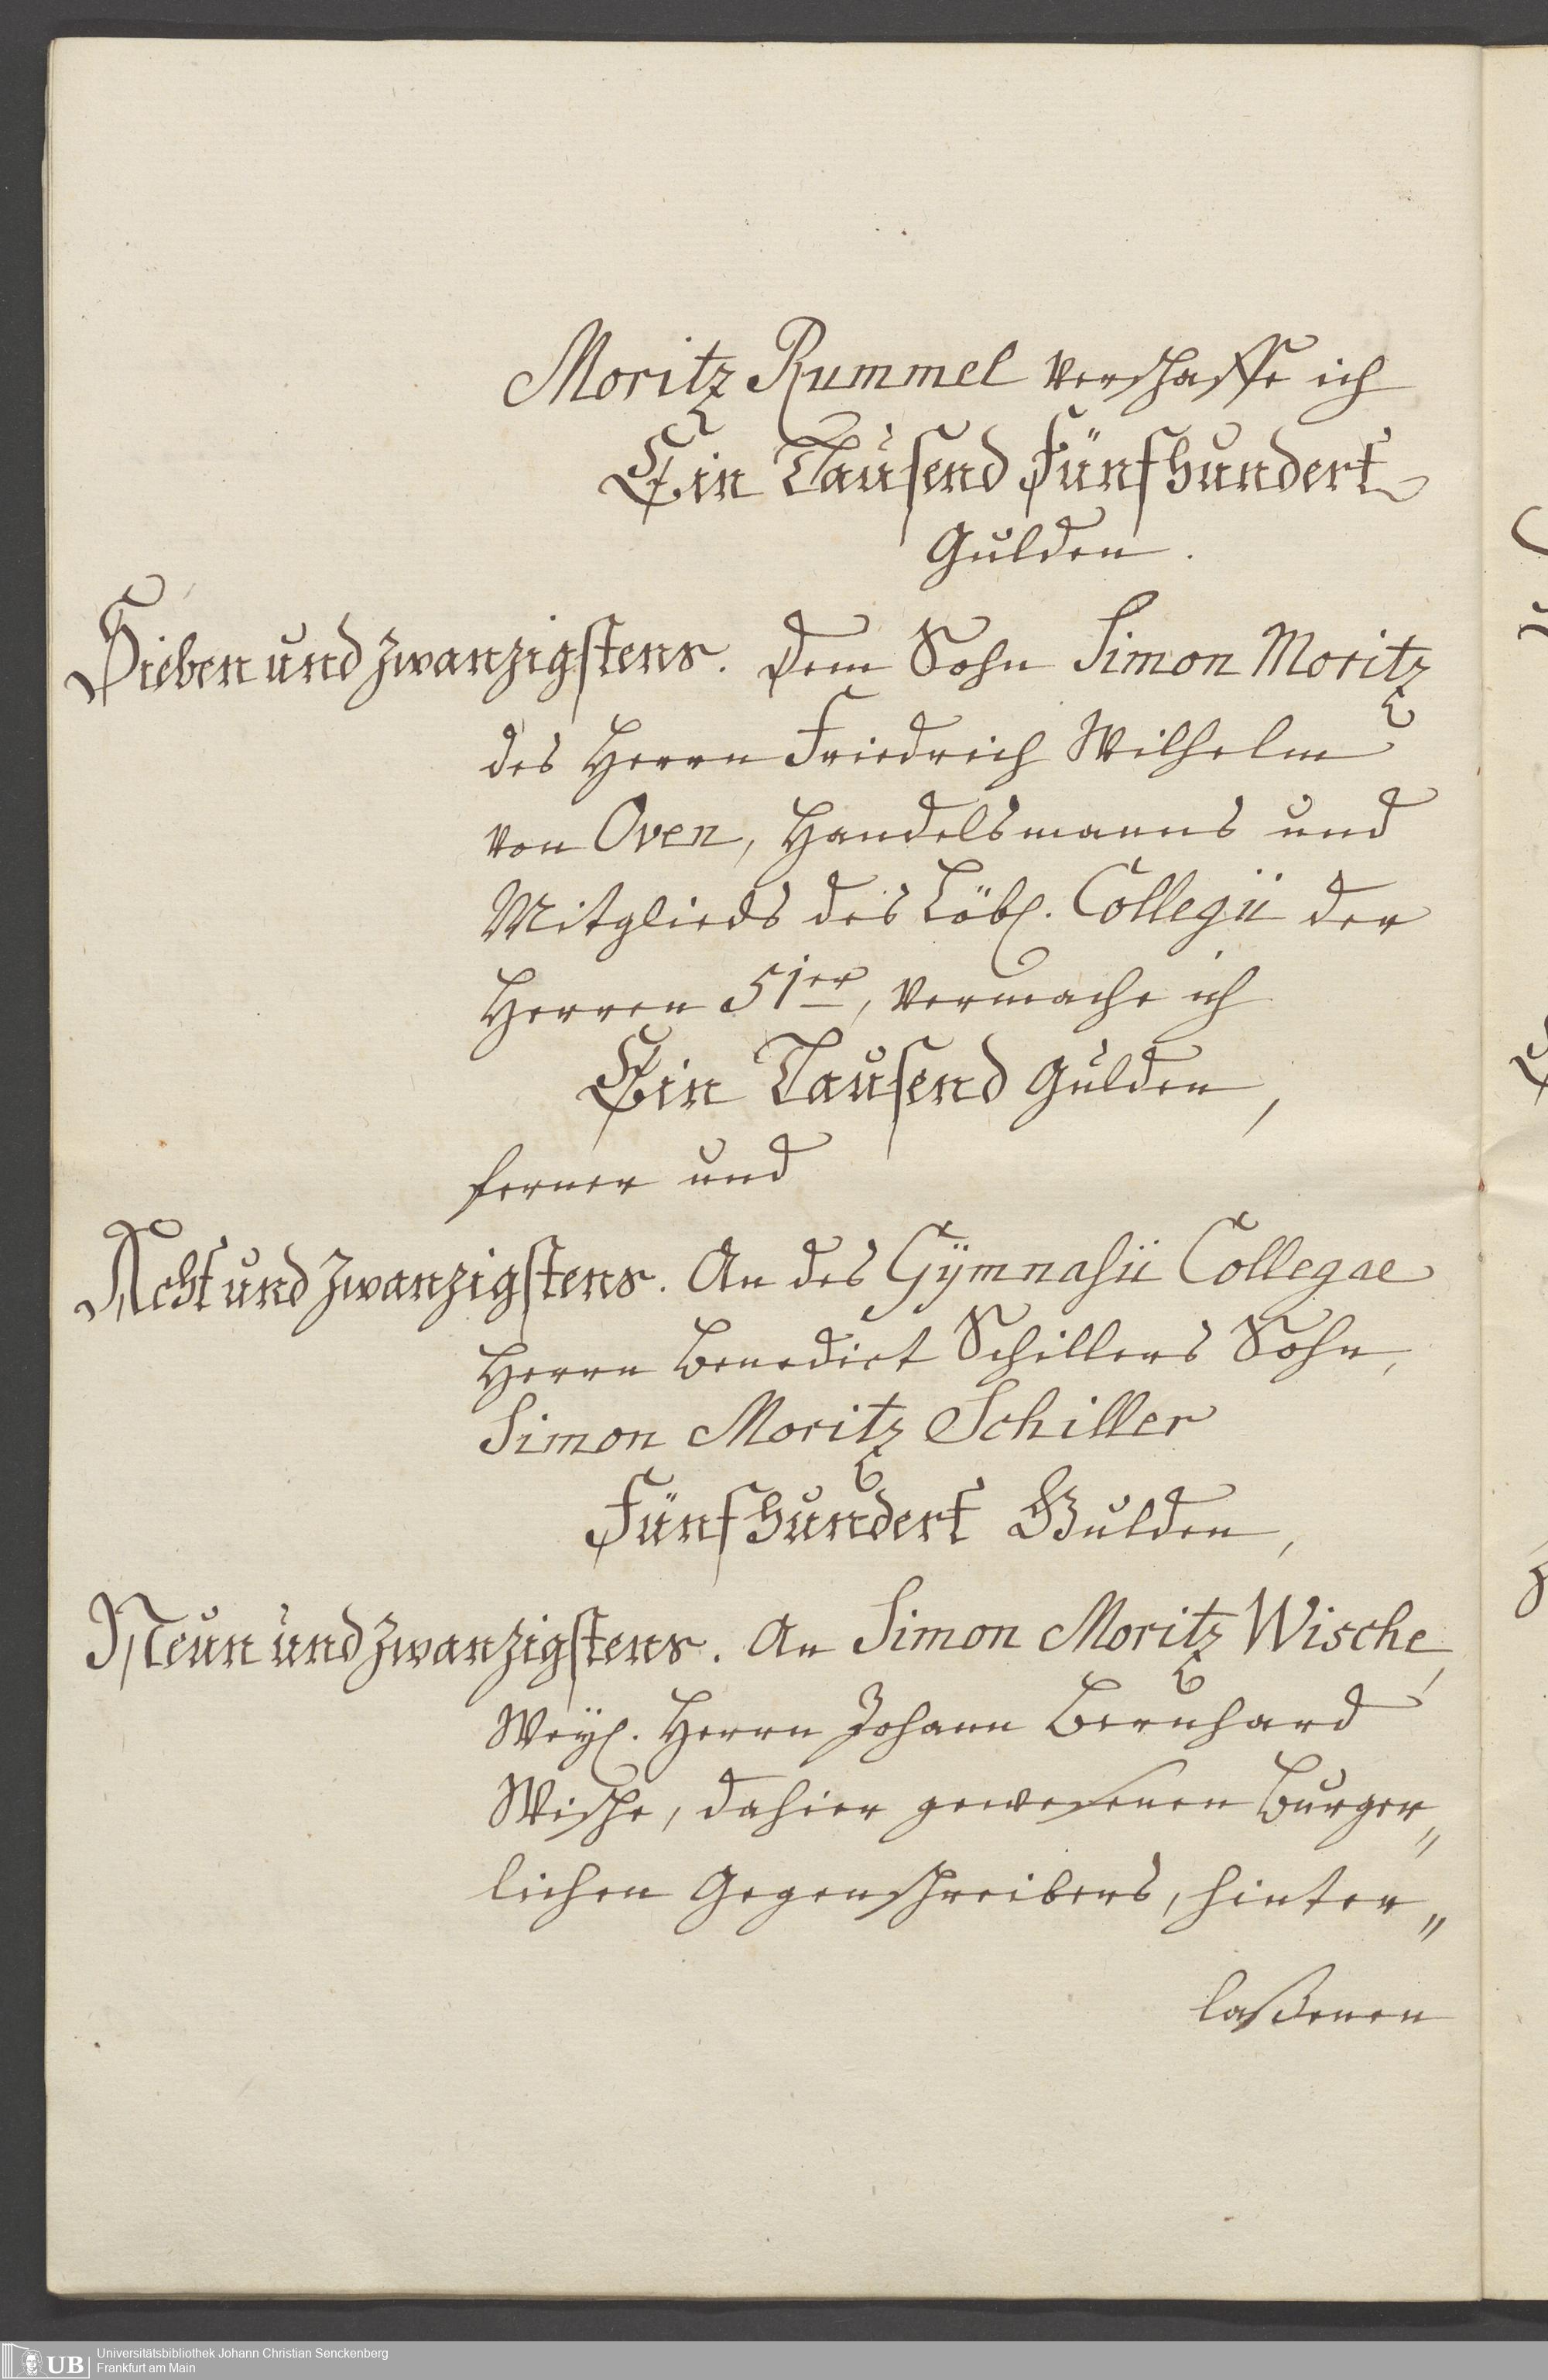 Moritz Rummel verschaffe ich
Ein Tausend Fünfhundert
Gulden.
Sieben und zwanzigstens. Dem Sohn Simon Moritz
des Herrn Friedrich Wilhelm
von Oven, Handelsmanns und
Mitglieds des Löbl. Collegii der
Herren 51er, vermache ich
Ein Tausend Gulden,
ferner und
Acht und zwanzigstens. An des Gÿmnasii Collegae
Herrn Benedict Schillers Sohn,
Simon Moritz Schiller
Fünfhundert Gulden,
Neun und zwanzigstens. An Simon Moritz Wische,
Weÿl. Herrn Johann Bernhard
Wische, dahier gewesenen Burger„
lichen Gegenschreibers, hinter„
laßenen
UB Universitätsbibliothek Johann Christian Senckenberg
Frankfurt am Main